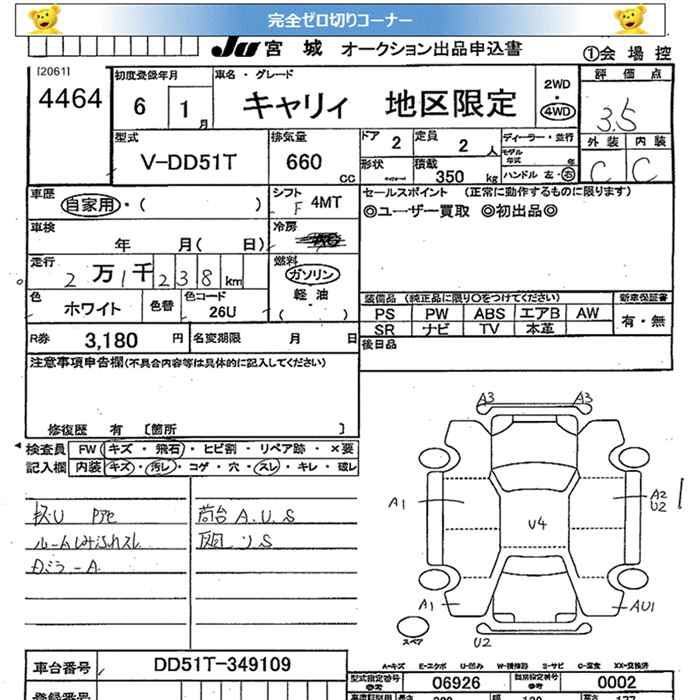 完全ゼロ切りコーナー
JU 宮城 オークション出品申込書
①会場控
[2061]
4464
初度登録年月
6 1月
車名・グレード
キャリィ 地区限定
2WD
・
4WD
評価点
3.5
型式
V-DD51T
排気量
660 cc
ドア 2
定員 2人
形状
積載 350 kg
ディーラー・並行
モデル年式 年
ハンドル 左・右
外装 内装
C C
車歴
自家用・( )
シフト
F 4MT
セールスポイント (正常に動作するものに限ります)
◎ユーザー買取 ◎初出品◎
車検
年 月( 日)
冷房
走行
2万1千238km
燃料
ガソリン
軽油
( )
色
ホワイト
色替
色コード
26U
装備品 (純正品に限り○をつけてください)
新車保証書
PS PW ABS エアB AW
SR ナビ TV 本革
有・無
R券 3,180 円
名変期限 月 日
後日品
注意事項申告欄(不具合内容等は具体的に記入してください)
修復歴 有 〔箇所 〕
検査員
記入欄
FW キズ・飛石・ヒビ割・リペア跡・×要
内装 キズ・汚レ・コゲ・穴・スレ・キレ・破レ
荷台 A.U.S
A3 A3
A1
A2
U2
U4
A1
AU1
スペア
U2
A-キズ E-エクボ U-凹み W-補修跡 S-サビ C-腐食 XX-交換済
車台番号 DD51T-349109
型式指定番号
参考
06926
類別指定番号
参考
0002
登録番号